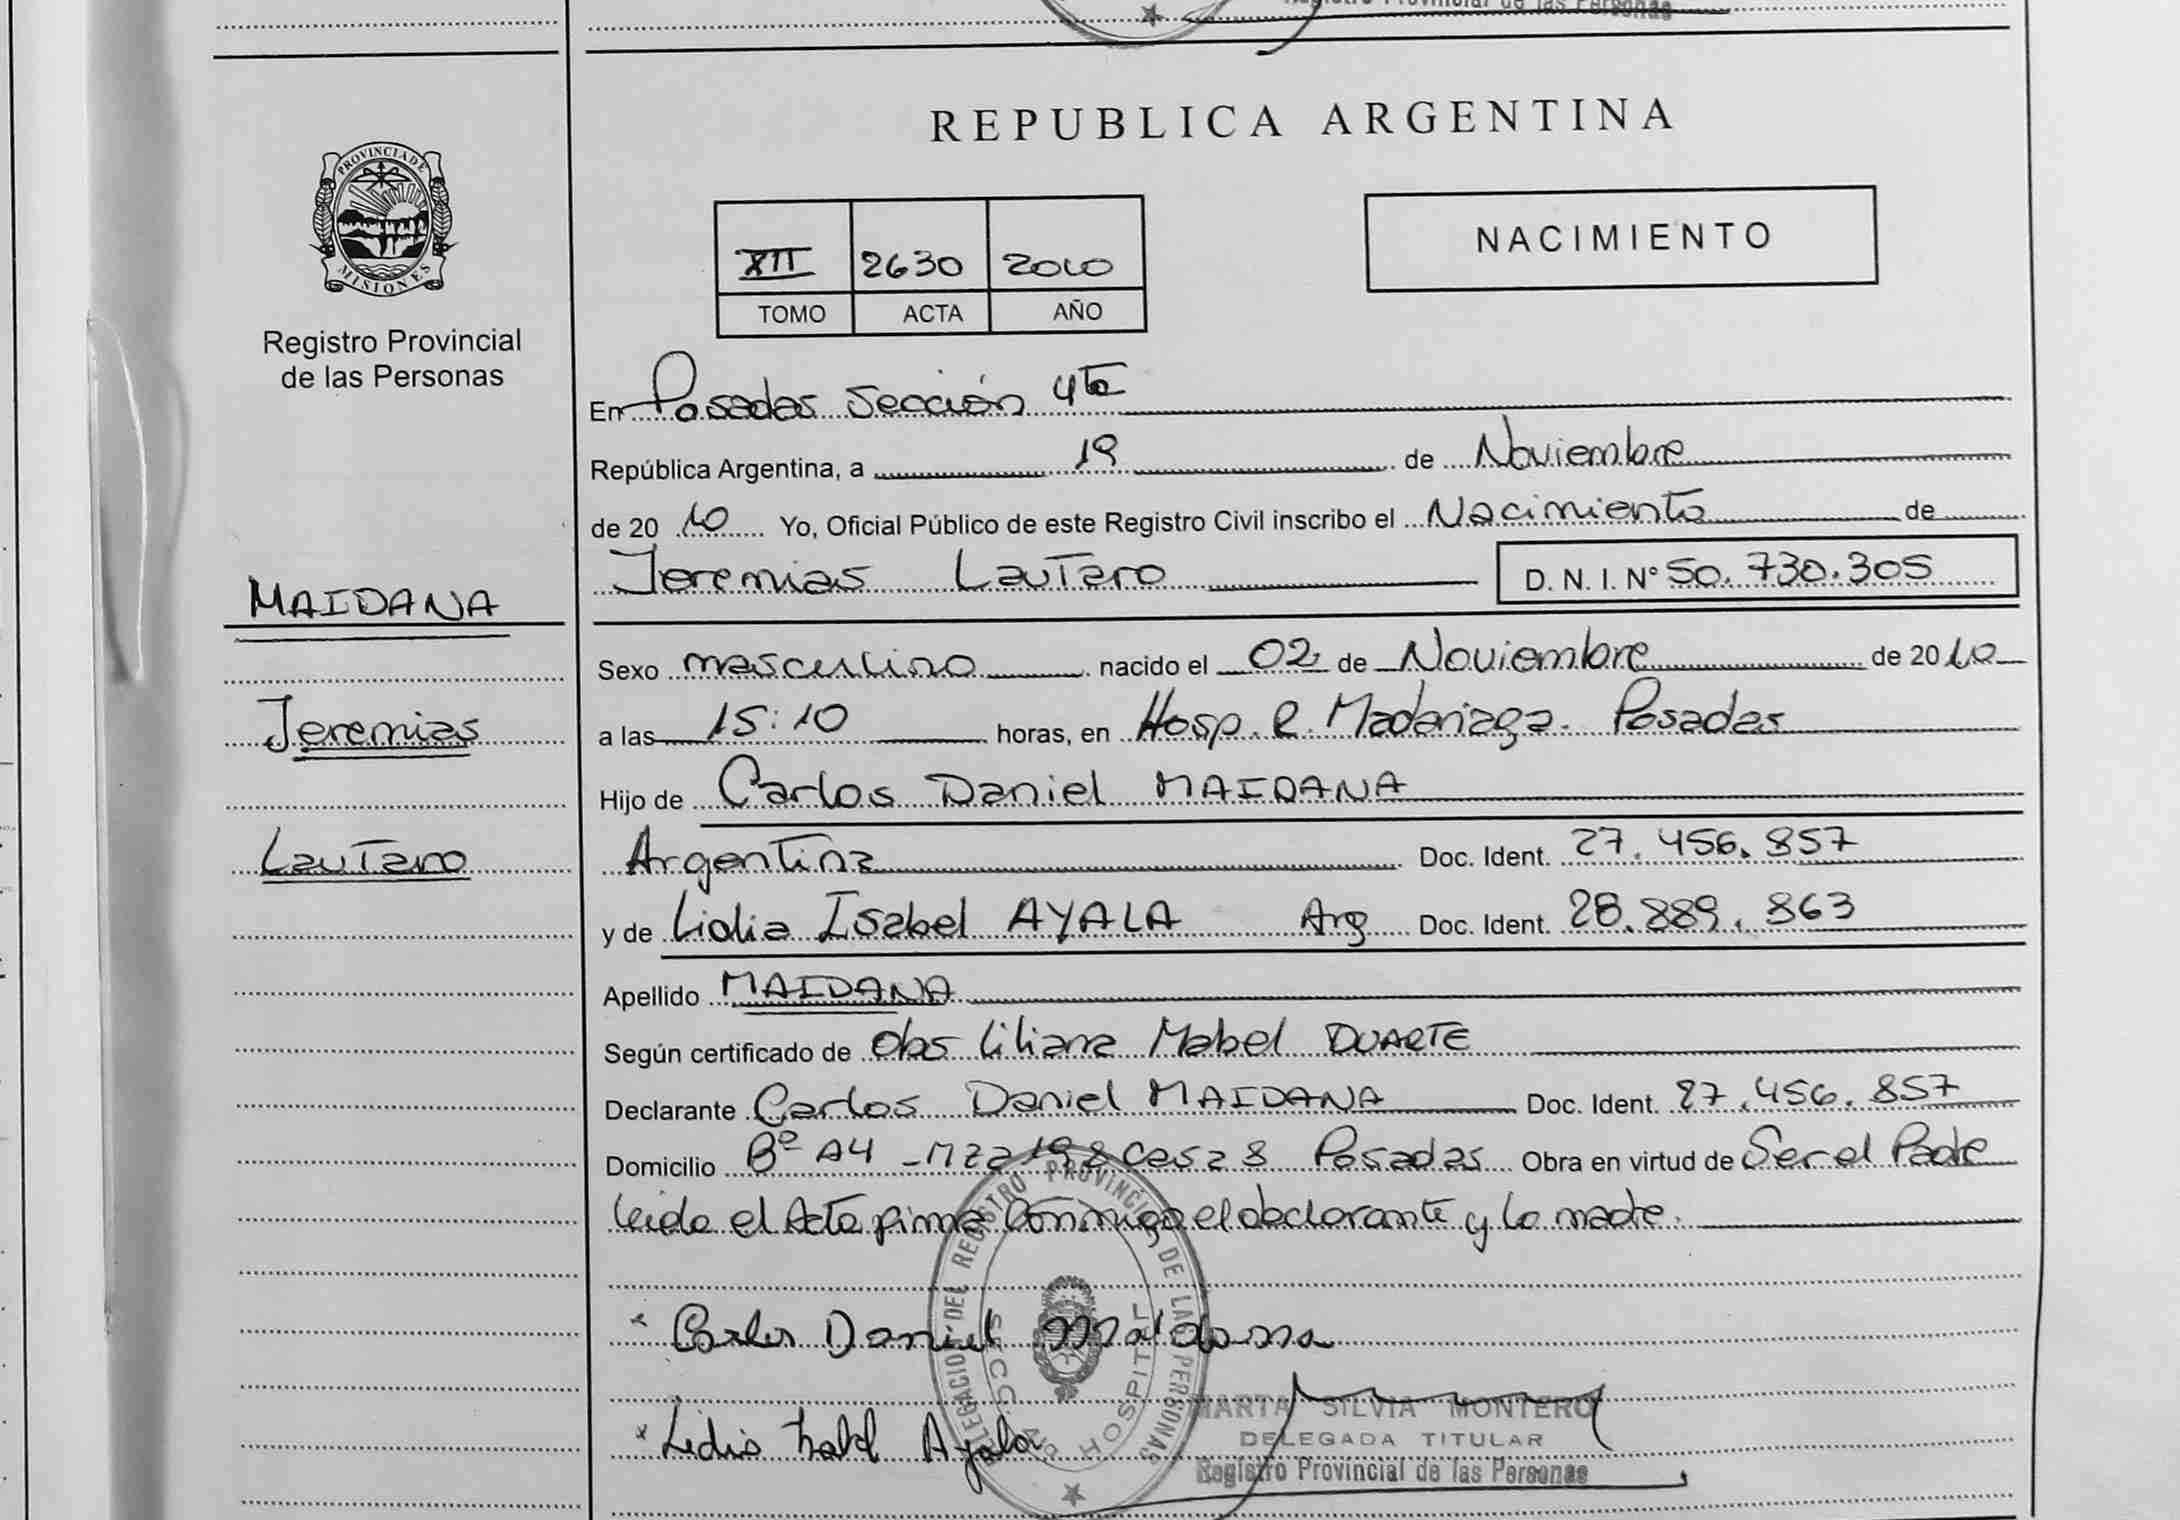 Registro Provincial de las Personas
REPUBLICA ARGENTINA
PROVINCIA DE
MISIONES
Registro Provincial
de las Personas
NACIMIENTO
XII 2630 2010
TOMO ACTA AÑO
En Posadas Sección 4ta
República Argentina, a 19 de Noviembre
de 20 10 Yo, Oficial Público de este Registro Civil inscribo el Nacimiento de
Jeremias Lautaro D. N. I. N° 50.730.305
MAIDANA
Jeremias
Lautaro
Sexo masculino nacido el 02 de Noviembre de 2010
a las 15:10 horas, en Hosp. R. Madariaga. Posadas
Hijo de Carlos Daniel MAIDANA
Argentina Doc. Ident. 27.456.857
y de Lidia Isabel AYALA Arg Doc. Ident. 28.889.863
Apellido MAIDANA
Según certificado de Obs Liliana Mabel DUARTE
Declarante Carlos Daniel MAIDANA Doc. Ident. 27.456.857
Domicilio Bº A4 - Mza 198 Casa 8 Posadas Obra en virtud de Ser el Padre
leida el Acta firma Conmigo el declarante y la madre.
x Carlos Daniel Maidana
x Lidia Isabel Ayala
DELEGACION DEL REGISTRO PROVINCIAL DE LAS PERSONAS
SECC. 4ª HOSPITAL
MARTA SILVIA MONTERO
DELEGADA TITULAR
Registro Provincial de las Personas